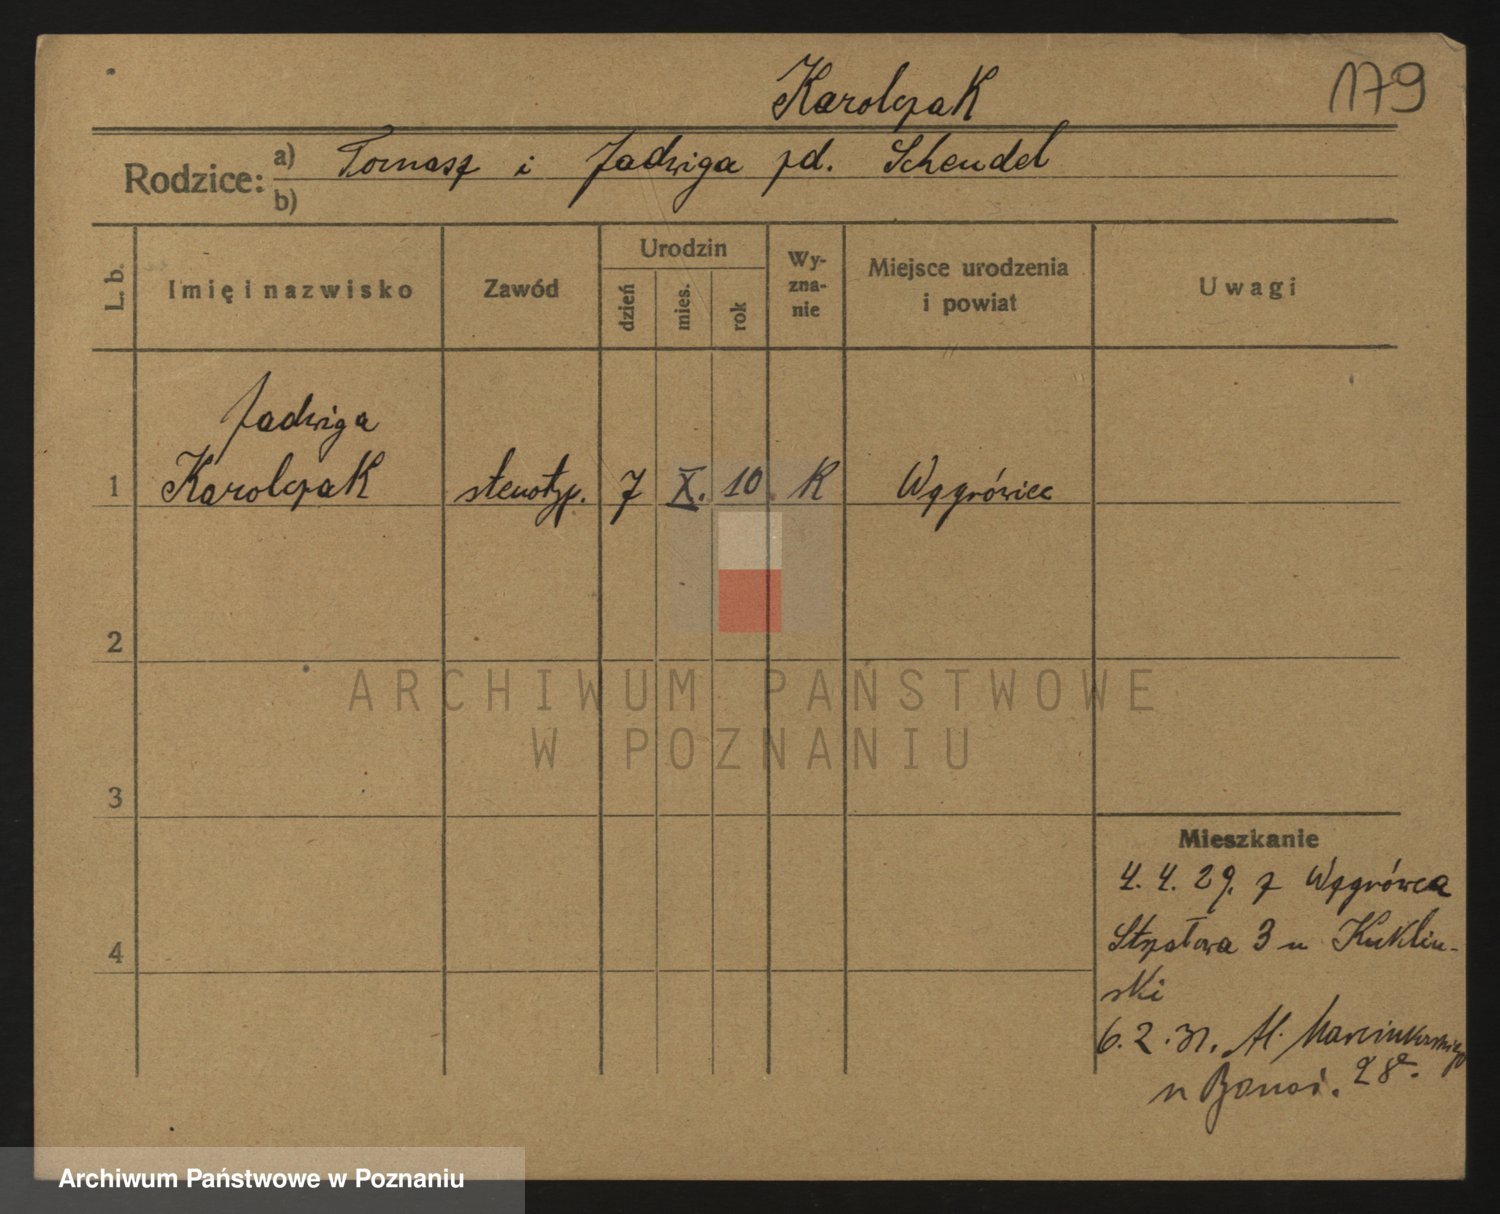 Karolczak
179
Rodzice: a) Tomasz i Jadwiga zd. Scheudel
b)
L. b.
Imię i nazwisko
Zawód
Urodzin
dzień
mies.
rok
Wy-
zna-
nie
Miejsce urodzenia
i powiat
Uwagi
Jadwiga
1 Karolczak stenotyp. 7 X. 10 R Wągrówiec
2
ARCHIWUM PAŃSTWOWE
W POZNANIU
3
4
Mieszkanie
4. 4. 29. z Wągrówca
Strzałowa 3 u Kuklin-
ski
6. 2. 31. Al. Marcinkowskiego
28.
u
Archiwum Państwowe w Poznaniu